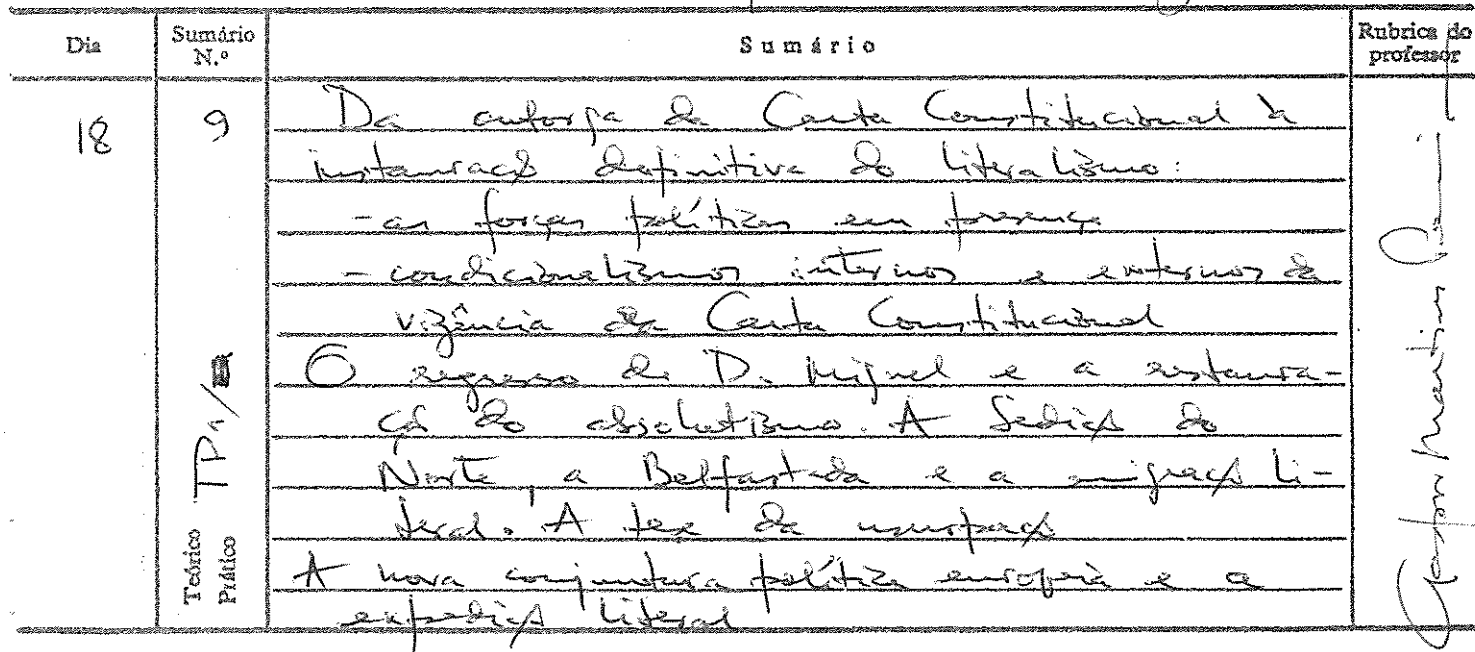 Dia
Sumário N.º
Sumário
Rubrica do professor
18
9
Da outorga da Carta Constitucional à
instauração definitiva do liberalismo:
- as forças políticas em presença
- condicionalismos internos e externos da
vigência da Carta Constitucional
O regresso de D. Miguel e a restaura-
ção do absolutismo. A Sedição do
Norte, a Belfastada e a emigração li-
beral. A tese da usurpação
A nova conjuntura política europeia e a
expedição liberal
TP1/
Teórico
Prático
Gaspar Martins